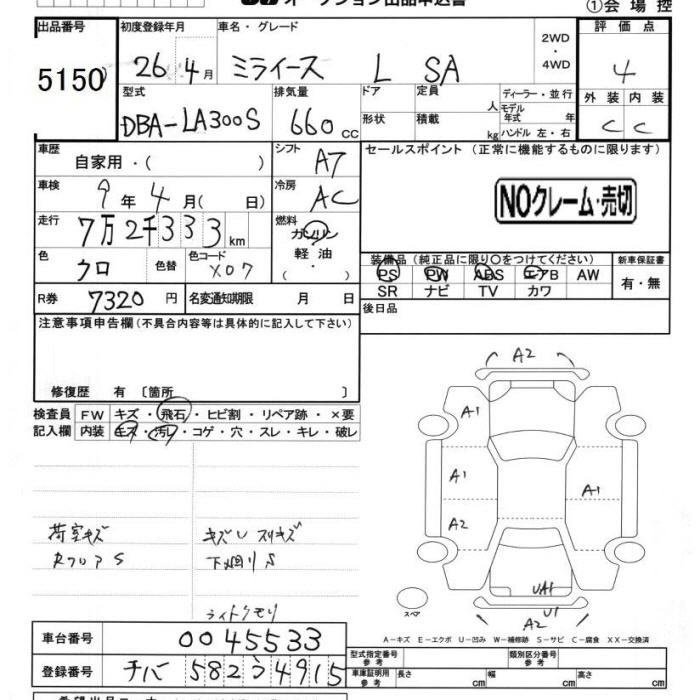 オークション出品申込書
①会場控
出品番号 初度登録年月 車名・グレード 2WD・4WD 評価点
5150 26 4月 ミライース L SA 4
型式 排気量 ドア 定員 人 ディーラー・並行 外装 内装
DBA-LA300S 660cc 形状 積載 kg モデル年式 年 ハンドル 左・右 C C
車歴 自家用・( ) シフト A7 セールスポイント (正常に機能するものに限ります)
車検 9年 4月( 日) 冷房 AC
NOクレーム・売切
走行 7万2千333km 燃料 ガソリン
軽油
( ・ )
色 クロ 色替 色コード X07
装備品(純正品に限り○をつけてください) 新車保証書
PS PW ABS エアB AW 有・無
SR ナビ TV カワ
R券 7320円 名変通知期限 月 日
後日品
注意事項申告欄(不具合内容等は具体的に記入して下さい)
修復歴 有 〔箇所 〕
検査員 FW キズ・飛石・ヒビ割・リペア跡・×要
記入欄 内装 キズ・汚レ・コゲ・穴・スレ・キレ・破レ
A2
A1
A1 A1
A2
荷室キズ キズU スリキズ
RフロアS 下廻りS
UA1
U1
A2
スペア
ライトクモリ
A-キズ E-エクボ U-凹み W-補修跡 S-サビ C-腐食 XX-交換済
車台番号 0045533
型式指定番号 参考 類別区分番号 参考
登録番号 チバ 582 う 4915
車庫証明用 参考 長さ cm 幅 cm 高さ cm